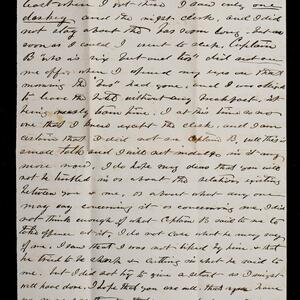 least when I got here I saw only one
darkey and the night clerk, and I did
not stay about the bar room long, but as
soon as I could I went to sleep, Captain
B who is my "but and ben" did not see
me off, when I opened my eyes on that
morning the bus had gone, and I was obliged
to leave the Hotel without any breakfast, it
being nearly train time, I at this time as now
that I knew except the clerk, and I am
certain that I did not see Captain B, all this is
small talk and I will not indulge in it any
more now, I do hope my dear that you will
not be troubled in or about the relation existing
between you & me, or about what any one
may say concerning it or concerning me, I did
not think enough of what Captain B said to me to
take offence at it, I do not care what he may say
of me. I saw that I was not liked by him & that
he tried to be sharp & cutting in what he said to
me, but I did not try to give a retort as I might
well have done, I hope that you are well, that you have